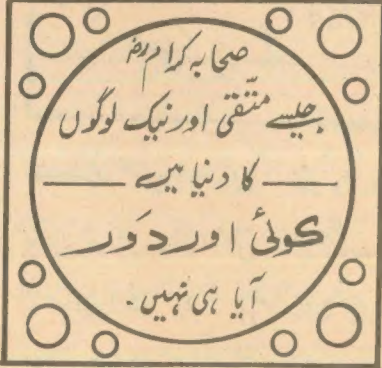 صحابہ کرامؓ
جیسے متّقی اور نیک لوگوں
کا دنیا میں
کوئی اور دَور
آیا ہی نہیں۔